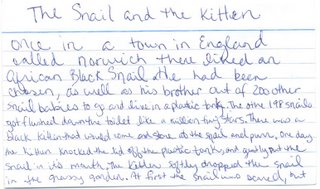 The Snail and the Kitten
Once in a town in England
called Norwich there lived an
African Black Snail. He had been
chosen, as well as his brother out of 200 other
snail babies to go and live in a plastic box. The other 198 snails
got flushed down the toilet like a million tiny stars. There was a
black kitten that would come and stare at the snail and purr, one day
the kitten knocked the lid off the plastic tank, and gently put the
snail in his mouth. The kitten softly dropped the snail
in the grassy garden. At first the snail was scared, but